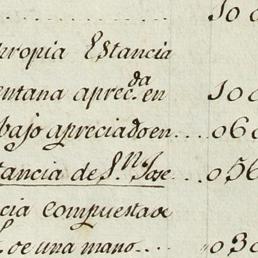 ........ 10
propia Estancia
entana aprec.da en 100
bajo apreciado en.... 06
tancia de S.n Jose 056
cia compuesta de
de una mano.... 030